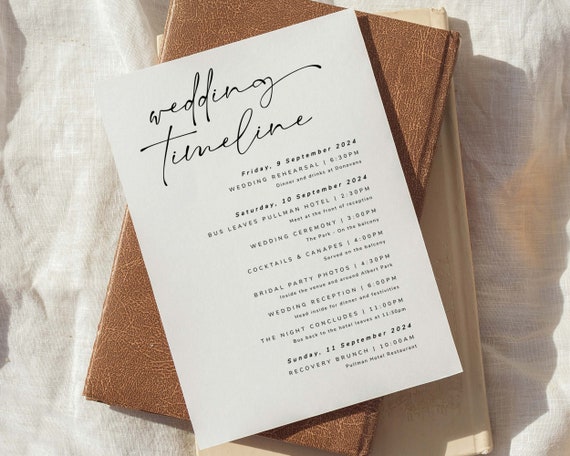 wedding
timeline
Friday, 9 September 2024
WEDDING REHEARSAL | 6:30PM
Dinner and drinks at Donovans
Saturday, 10 September 2024
BUS LEAVES PULLMAN HOTEL | 2:30PM
Meet at the front of reception
WEDDING CEREMONY | 3:00PM
The Park - On the balcony
COCKTAILS & CANAPES | 4:00PM
Served on the balcony
BRIDAL PARTY PHOTOS | 4:30PM
Inside the venue and around Albert Park
WEDDING RECEPTION | 6:00PM
Head inside for dinner and festivities
THE NIGHT CONCLUDES | 11:00PM
Bus back to the hotel leaves at 11:30pm
Sunday, 11 September 2024
RECOVERY BRUNCH | 10:00AM
Pullman Hotel Restaurant